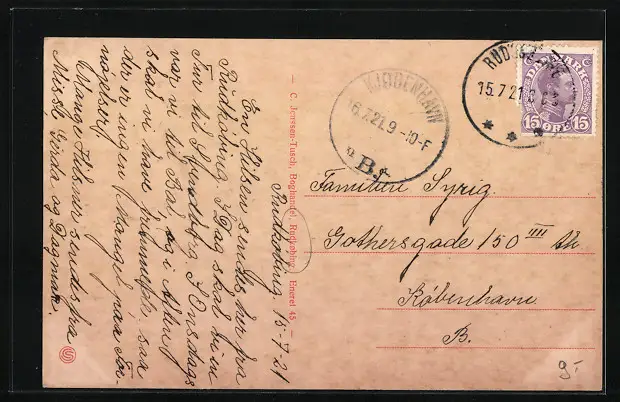 Rudkøbing. 15-7-21
En Hilsen sendes her fra
Rudkøbing. I Dag skal vi en
Tur til Svendborg. I Onsdags
var vi til Bal, og i Aften
skal vi have
der er ingen Mangel paa For-
nøjelser.
Mange Hilsner sendes fra
Misse, Gerda og Dagmar.
— C. Jenssen-Tusch, Boghandel, Rudkøbing. Eneret 45
KJØBENHAVN
16.7.21. 9-10 F
B.
RUDKØBING
15.7.21
DANMARK
15 ØRE 15
Familien Syrig.
Gothersgade 150 IIII th
København
B.
9,-